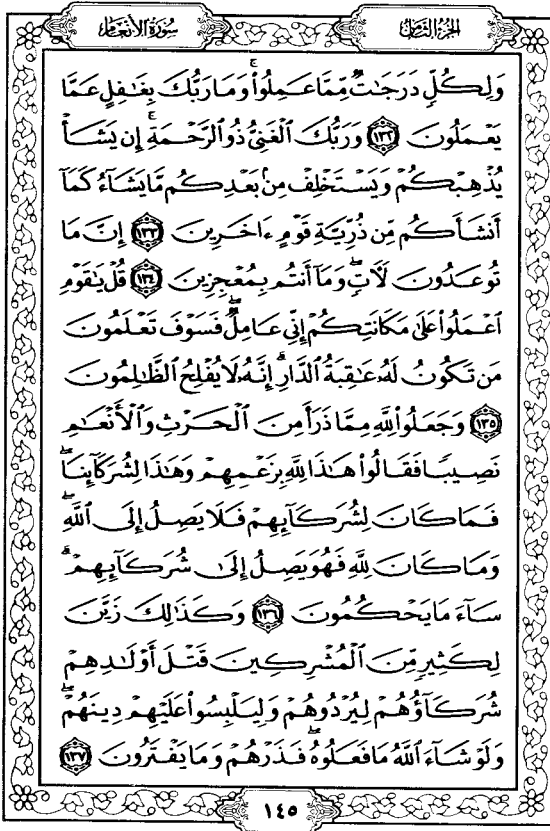 الجزء الثامن
سورة الأنعام
وَلِكُلٍّ دَرَجَٰتٌ مِّمَّا عَمِلُوا۟ وَمَا رَبُّكَ بِغَٰفِلٍ عَمَّا
يَعْمَلُونَ ١٣٢ وَرَبُّكَ ٱلْغَنِىُّ ذُو ٱلرَّحْمَةِ إِن يَشَأْ
يُذْهِبْكُمْ وَيَسْتَخْلِفْ مِنۢ بَعْدِكُم مَّا يَشَآءُ كَمَآ
أَنشَأَكُم مِّن ذُرِّيَّةِ قَوْمٍ ءَاخَرِينَ ١٣٣ إِنَّ مَا
تُوعَدُونَ لَءَاتٍ وَمَآ أَنتُم بِمُعْجِزِينَ ١٣٤ قُلْ يَٰقَوْمِ
ٱعْمَلُوا۟ عَلَىٰ مَكَانَتِكُمْ إِنِّى عَامِلٌ فَسَوْفَ تَعْلَمُونَ
مَن تَكُونُ لَهُۥ عَٰقِبَةُ ٱلدَّارِ إِنَّهُۥ لَا يُفْلِحُ ٱلظَّٰلِمُونَ
١٣٥ وَجَعَلُوا۟ لِلَّهِ مِمَّا ذَرَأَ مِنَ ٱلْحَرْثِ وَٱلْأَنْعَٰمِ
نَصِيبًا فَقَالُوا۟ هَٰذَا لِلَّهِ بِزَعْمِهِمْ وَهَٰذَا لِشُرَكَآئِنَا
فَمَا كَانَ لِشُرَكَآئِهِمْ فَلَا يَصِلُ إِلَى ٱللَّهِ
وَمَا كَانَ لِلَّهِ فَهُوَ يَصِلُ إِلَىٰ شُرَكَآئِهِمْ
سَآءَ مَا يَحْكُمُونَ ١٣٦ وَكَذَٰلِكَ زَيَّنَ
لِكَثِيرٍ مِّنَ ٱلْمُشْرِكِينَ قَتْلَ أَوْلَٰدِهِمْ
شُرَكَآؤُهُمْ لِيُرْدُوهُمْ وَلِيَلْبِسُوا۟ عَلَيْهِمْ دِينَهُمْ
وَلَوْ شَآءَ ٱللَّهُ مَا فَعَلُوهُ فَذَرْهُمْ وَمَا يَفْتَرُونَ ١٣٧
١٤٥